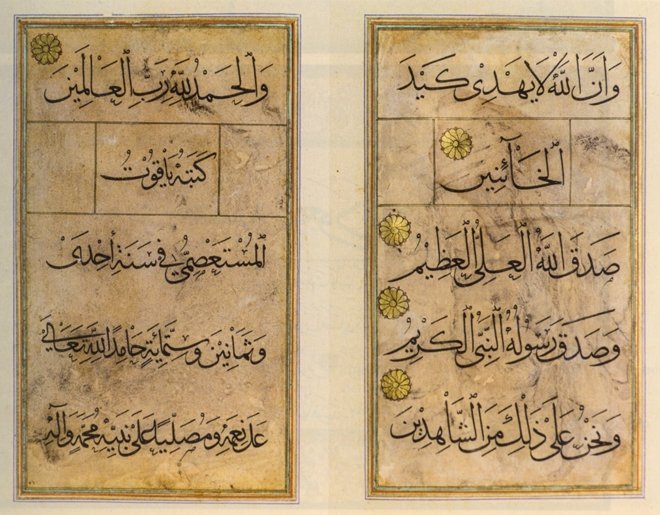 وَأَنَّ اللَّهَ لَا يَهْدِي كَيْدَ
الْخَآئِنِينَ
صَدَقَ اللَّهُ الْعَلِيُّ الْعَظِيمُ
وَصَدَقَ رَسُولُهُ النَّبِيُّ الْكَرِيمُ
وَنَحْنُ عَلَى ذَلِكَ مِنَ الشَّاهِدِينَ
وَالْحَمْدُ لِلَّهِ رَبِّ الْعَالَمِينَ
كَتَبَهُ يَاقُوتُ
الْمُسْتَعْصِمِيُّ فِي سَنَةِ أَحَدَى
وَثَمَانِينَ وَسِتِّمِائَةٍ حَامِدًا لِلَّهِ تَعَالَى
عَلَى نِعَمِهِ وَمُصَلِّيًا عَلَى نَبِيِّهِ مُحَمَّدٍ وَآلِهِ